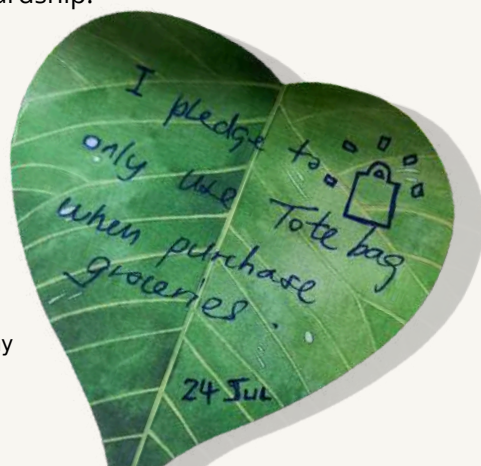 ardship.
I pledge to
only use Tote bag
when purchase
groceries.
y
24 JUL